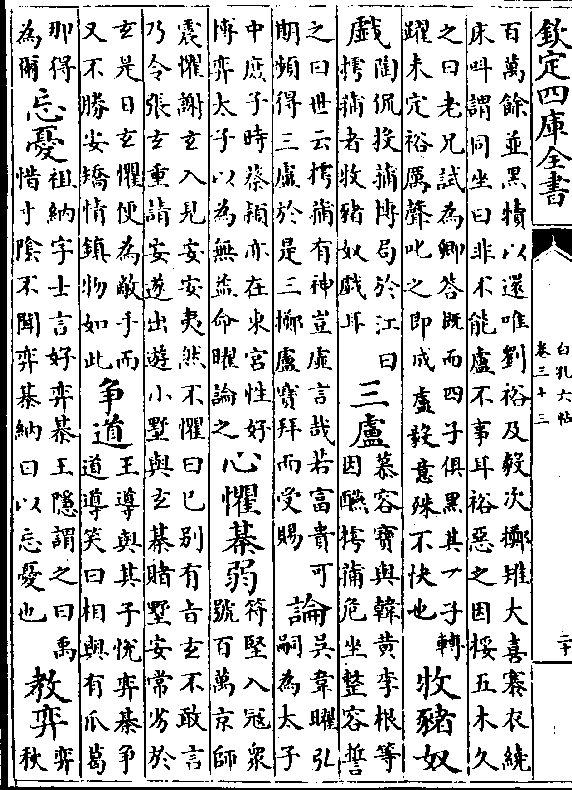 欽定四庫全書
白孔六帖
卷三十三
二十
百萬餘並黑犢以還唯劉裕及毅次擲雉大喜褰衣繞
床呌謂同坐曰非不能盧不事耳裕惡之因挼五木久
之曰老兄試為卿答既而四子俱黑其一子轉
躍未定裕厲聲叱之即成盧毅意殊不快也
牧豬奴
戲
陶侃投蒱博局於江曰
摴蒱者牧豬奴戲耳
三盧
慕容寳與韓黄李根等
因讌摴蒱危坐整容誓
之曰世云摴蒱有神豈虛言哉若富貴可
期頻得三盧於是三擲盧寳拜而受賜
論
吳韋曜弘
嗣為太子
中庶子時蔡頴亦在東宮性好
博弈太子以為無益命曜論之
心懼棊弱
符堅入冦衆
號百萬京師
震懼謝玄入見安安夷然不懼曰已别有旨玄不敢言
乃令張玄重請安遂出遊小墅與玄棊賭墅安常劣於
玄是日玄懼便為敵手而
又不勝安矯情鎮物如此
争道
王導與其子恱弈棊争
道導笑曰相與有瓜葛
那得
為爾
忘憂
祖納字士言好弈棊王隱謂之曰禹
惜寸陰不聞弈棊納曰以忘憂也
教弈
弈
秋